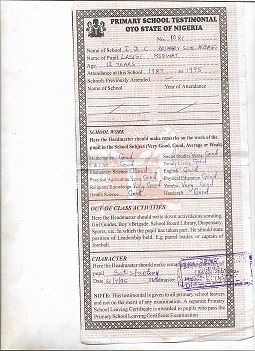 PRIMARY SCHOOL TESTIMONIAL
OYO STATE OF NIGERIA
No. 1981
Name of School
Name of Pupil
Age. 12 YEARS
Attendance at this School 1987 to 1995
Schools Previously Attended
Name of School Year of Attendance
SCHOOL WORK
Here the Headmaster should make remarks on the work of the
pupil in the School Subject (Very Good, Good, Average or Weak)
Mathematics Good Social Studies Very Good
Good Family Living Good
Elementary Science Good English Good
Practical Agriculture Very Good Physical Education Good
Religious Knowledge Very Good Yoruba Very Good
Health Science Good Handcraft Good
OUT-OF-CLASS ACTIVITIES
Here the Headmaster should write down activities as scouting,
Girl Guides, Boy's Brigade, School Board Library, Dispensary,
Sports, etc. In which the pupil has taken part. He should state
position of Leadership held. E.g patrol leader, or captain of
football.
CHARACTER
Here the Headmaster should make remarks
pupil Satisfactory
Headmaster
NOTE: This testimonial is given to all primary school leavers
and not on the merit of any examination. A separate Primary
School Leaving Certificate is awarded to pupils who pass the
Primary School Leaving Certificate Examination